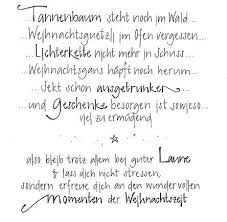 ...Tannenbaum steht noch im Wald...
...Weihnachtsguetzli im Ofen vergessen...
...Lichterkette nicht mehr in Schuss...
...Weihnachtsgans hüpft noch herum...
...Sekt schon ausgetrunken...
...und Geschenke besorgen ist sowieso...
viel zu ermüdend
also bleib trotz allem bei guter Laune
& lass dich nicht stressen,
sondern erfreue dich an den wundervollen
momenten der Weihnachtszeit